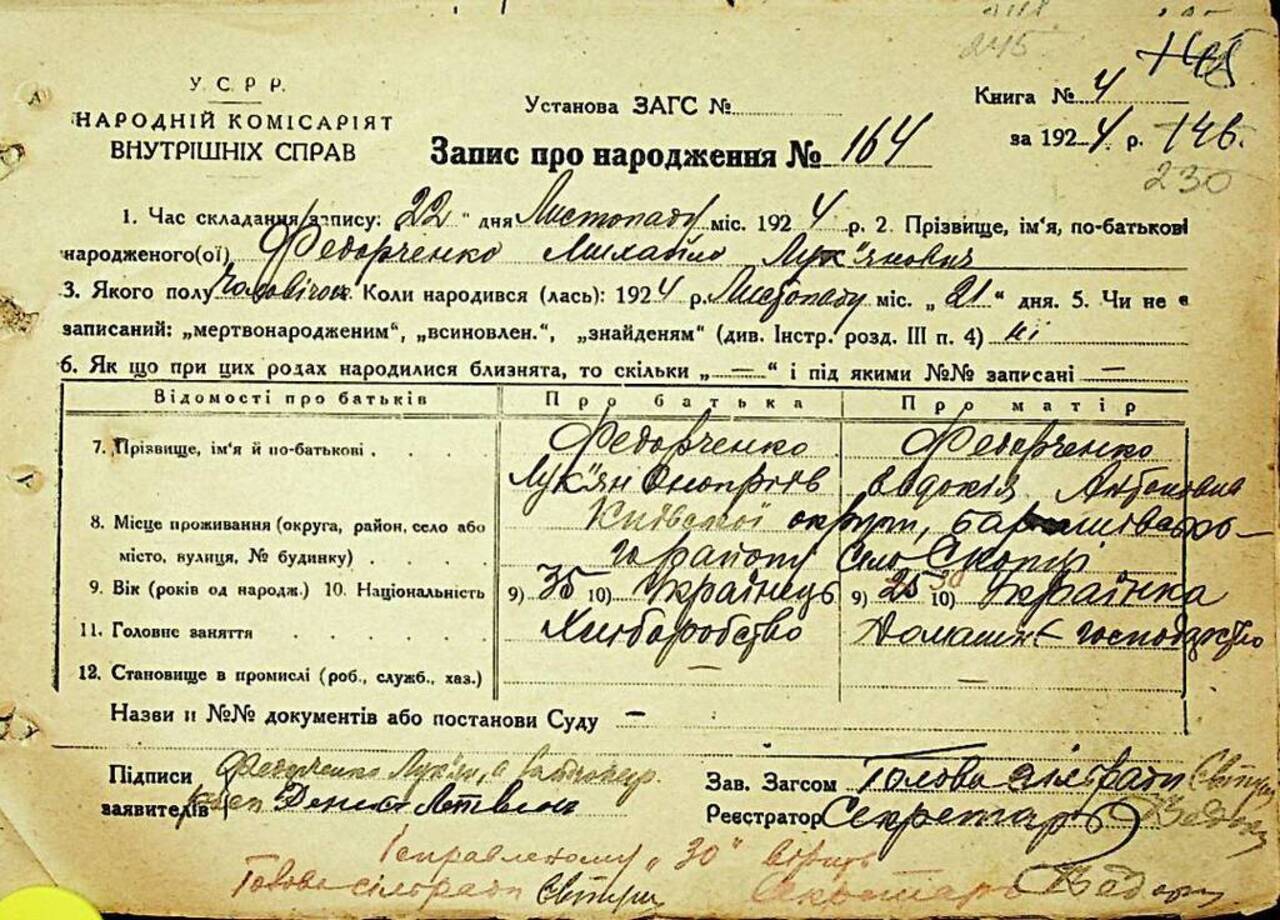 245
145
У. С. Р. Р.
НАРОДНІЙ КОМІСАРІЯТ
ВНУТРІШНІХ СПРАВ
Установа ЗАГС №
Книга № 4
за 1924 р. 146.
230
Запис про народження № 164
1. Час складання запису: 22 " дня Листопаду міс. 1924 р. 2. Прізвище, ім'я, по-батькові
народженого(ої) Федорченко Михайло Лук'янович
3. Якого полу Чоловічої Коли народився (лась): 1924 р. Листопаду міс. „ 21 " дня. 5. Чи не є
записаний: „мертвонародженим", „всиновлен.", „знайденям" (див. Інстр. розд. III п. 4) ні
6. Як що при цих родах народилися близнята, то скільки „ — " і під якими №№ записані —
Відомості про батьків Про батька Про матір
7. Прізвище, ім'я й по-батькові Федорченко Федорченко
Лук'ян Оноприїв Євдокія Антоновна
8. Місце проживання (округа, район, село або Київської округи,
місто, вулиця, № будинку) го району Село Скопці
9. Вік (років од народж.) 10. Національність 9) 35 10) Українець 9) 25 30 10) Українка
11. Головне заняття Хліборобство Домашнє господарство
12. Становище в промислі (роб., служб., хаз.) — —
Назви и №№ документів або постанови Суду —
Підписи Федорченко Лук'ян, а
заявителів Денис Литвин
Зав. Загсом Голова сільради
Реєстратор Секретар
Ісправленому „30" вірить
Голова сільради Секретарь